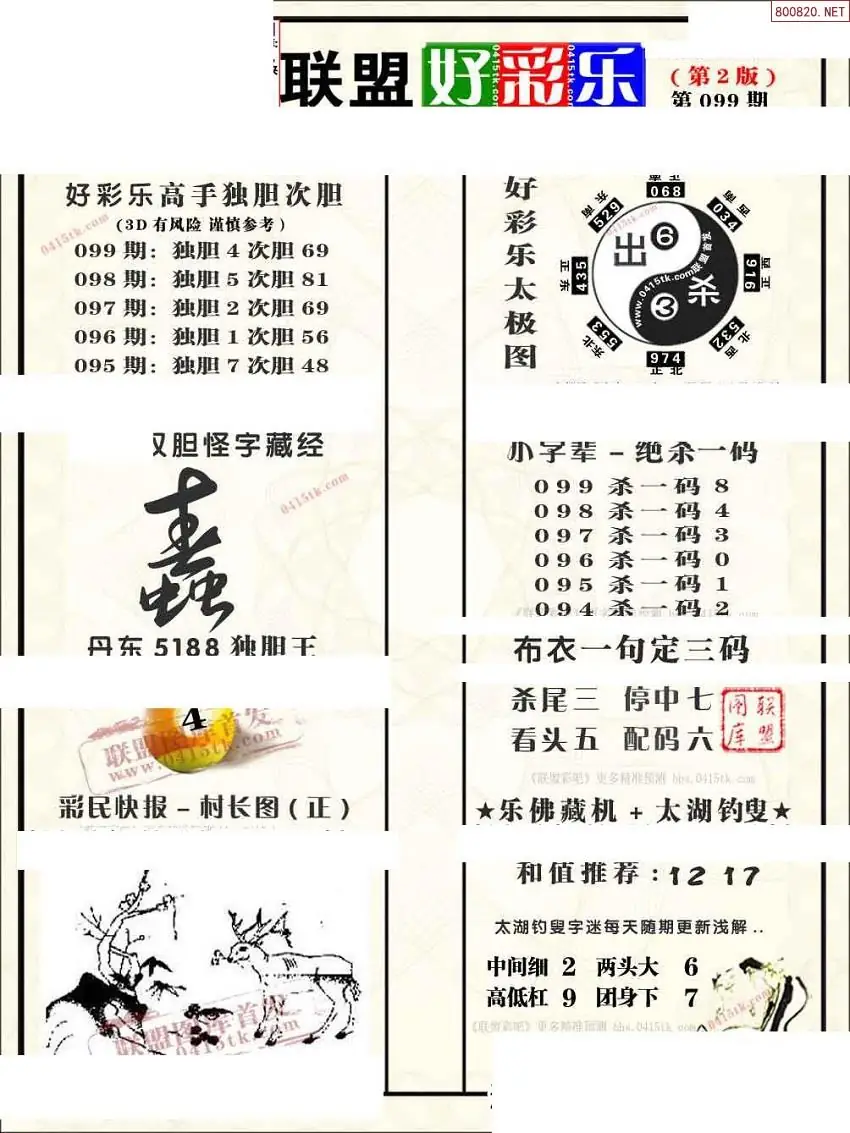 800820.NET
联盟好彩乐
(第2版)
第099期
好彩乐高手独胆次胆
(3D有风险 谨慎参考)
099期：独胆4次胆69
098期：独胆5次胆81
097期：独胆2次胆69
096期：独胆1次胆56
095期：独胆7次胆48
好彩乐太极图
068
东南 529
西南 034
正东 435
正西 916
东北 553
西北 532
974
正北
出6
杀3
www.0415tk.com联盟首发
0415tk.com
双胆怪字藏经
0415tk.com
丹东5188独胆王
4
联盟图库首发
www.0415tk.com
彩民快报-村长图(正)
联盟图库首发
0415tk.com
小字辈-绝杀一码
099 杀一码8
098 杀一码4
097 杀一码3
096 杀一码0
095 杀一码1
094 杀一码2
布衣一句定三码
杀尾三 停中七
看头五 配码六
联盟图库
《联盟彩吧》更多精准预测 bbs.0415tk.com
★乐佛藏机+太湖钓叟★
和值推荐：12 17
太湖钓叟字迷每天随期更新浅解..
中间细 2 两头大 6
高低杠 9 团身下 7
《联盟彩吧》更多精准预测 bbs.0415tk.com
0415tk.com